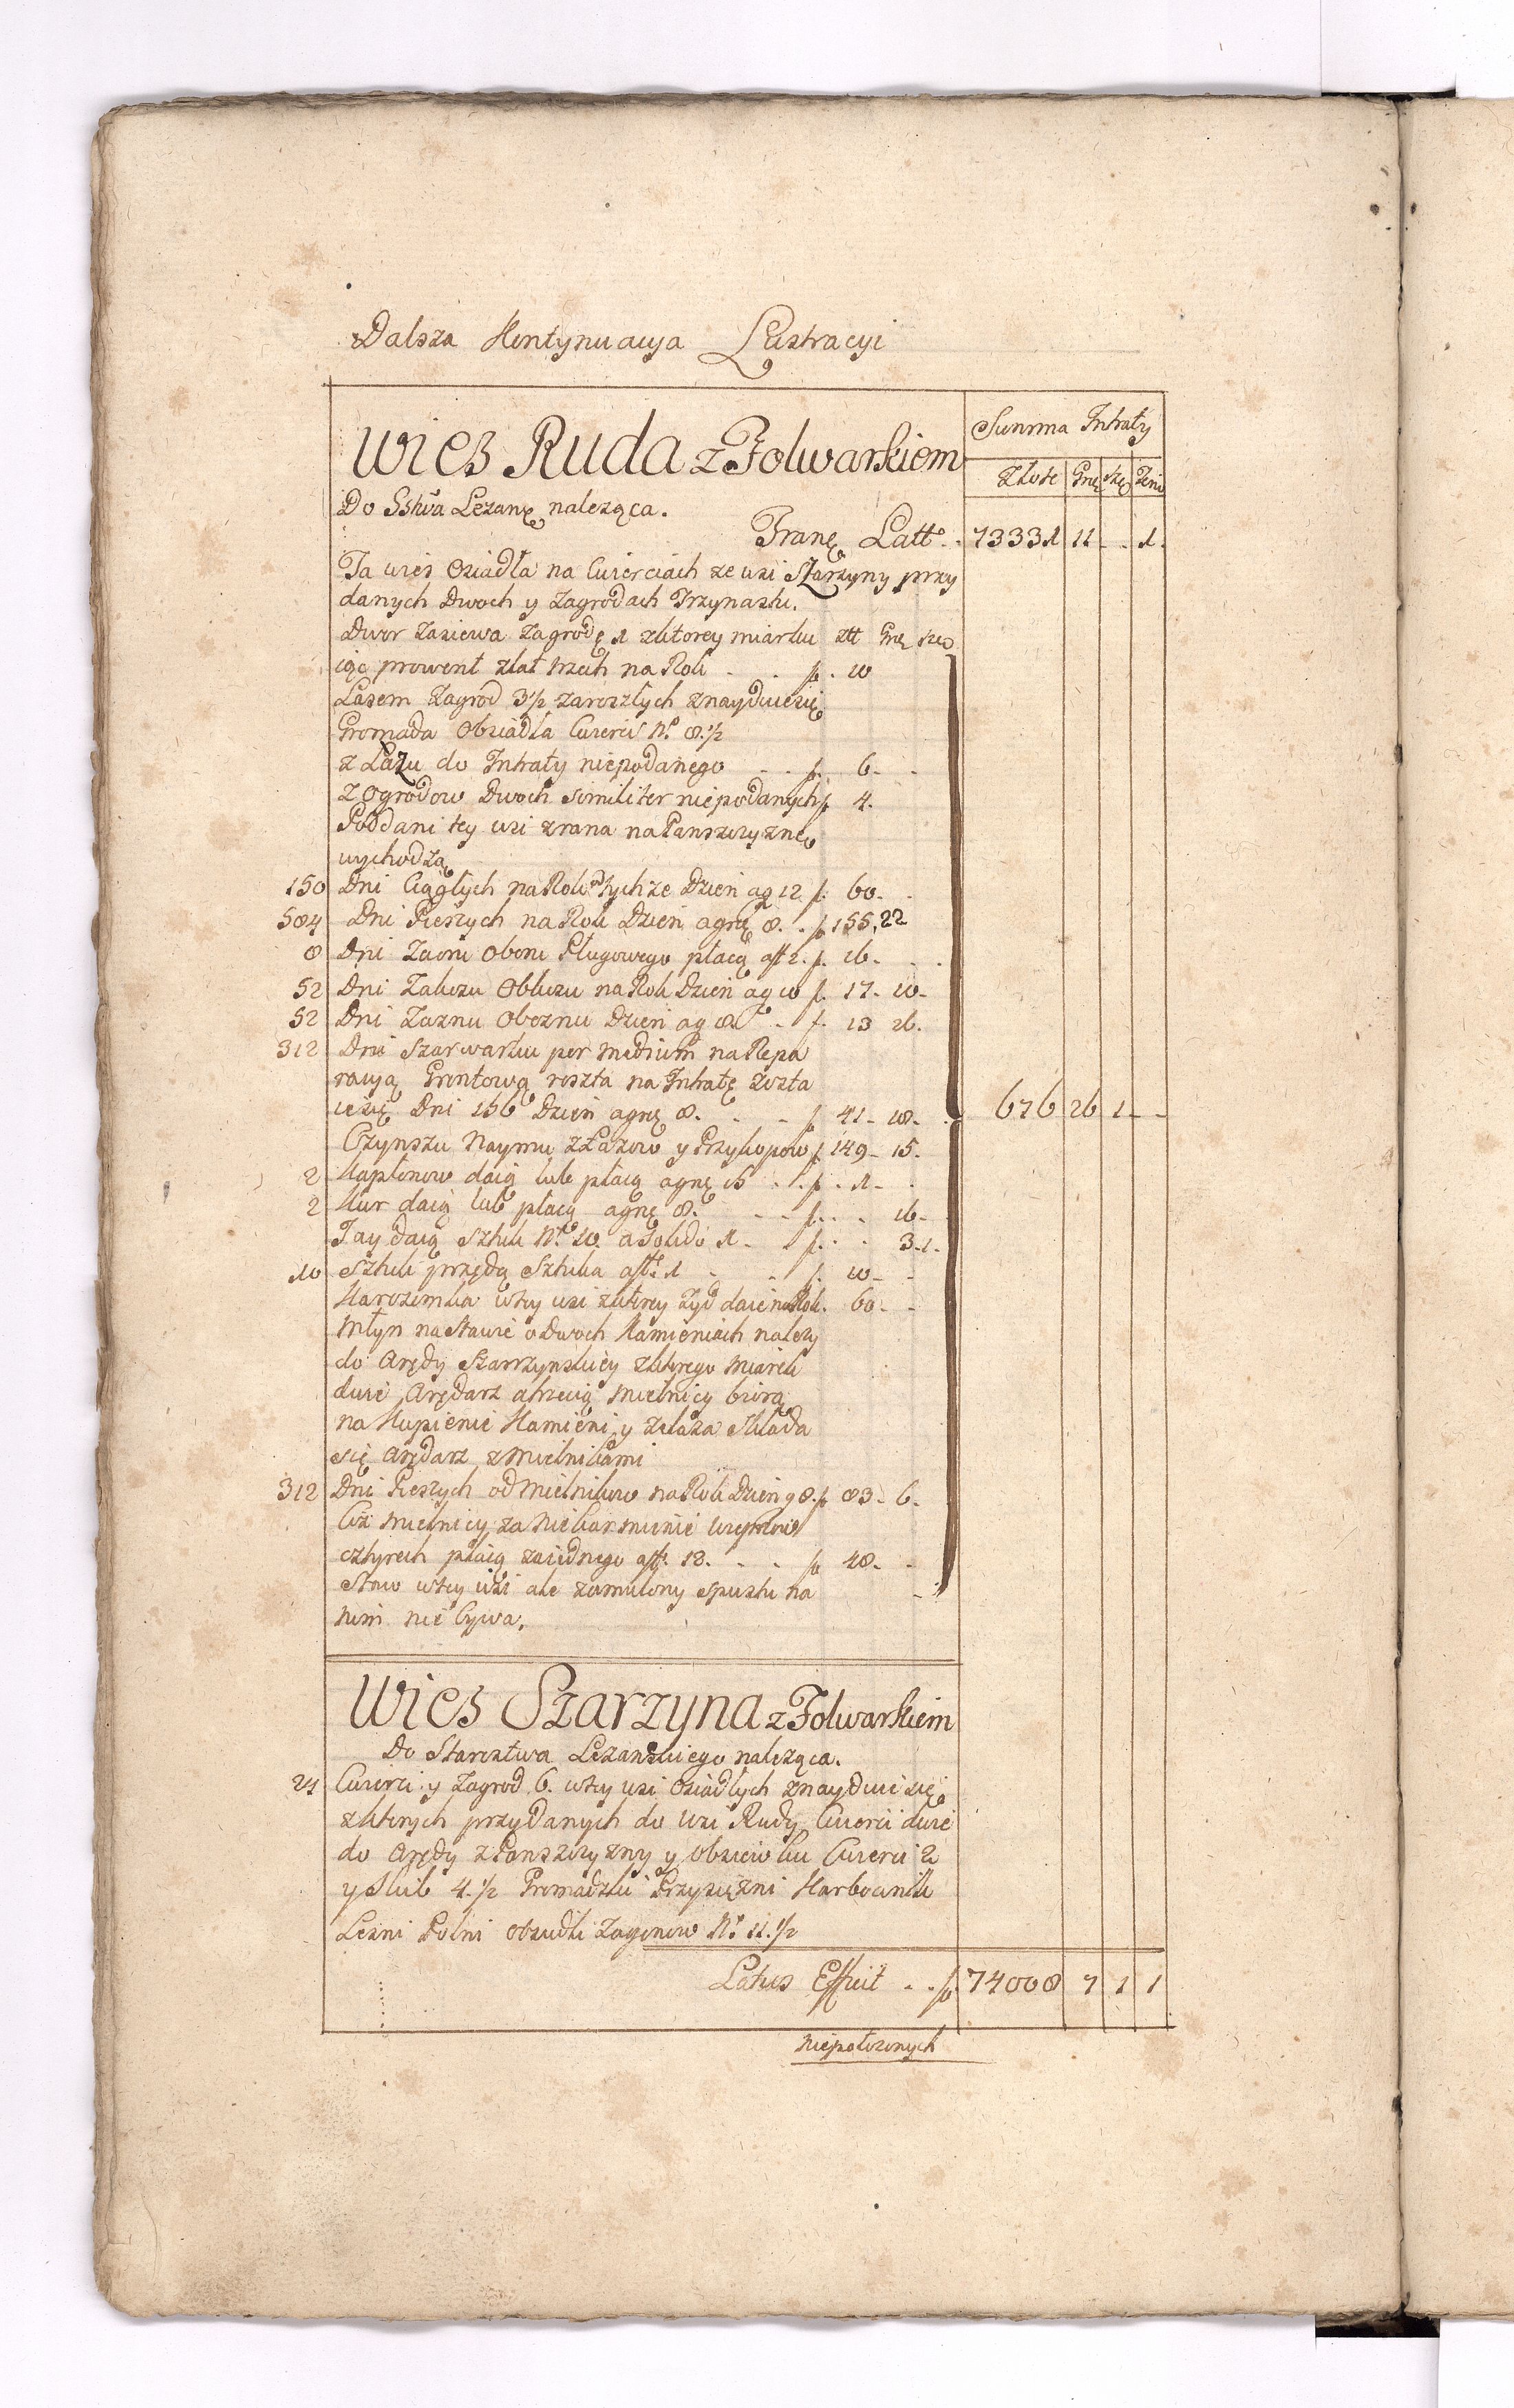 Dalsza Kontynuacya Lustracyi
Wies Ruda z Folwarkiem
Summa Intraty
Złote Grę Sze Deni
Do Sstwa Lezanę naleząca.
Tranę Latt°. 73331 11 - 1.
Ta wies osiadła na Cwierciach ze wsi Szarzyny przy
danych Dwoch y Zagrodach Trzynastu.
Dwor Zasiewa Zagrodę 1 z ktorey miarku złł Grę sze
iąc prowent z lat trzech na Rok - - f. 10
Lasem Zagrod 3½ zaroszłych znayduie się
Gromada Obsiadła Cwierci N° 8.½
z Łazu do Intraty niepodanego - - f. 6 - -
z Ogrodow Dwoch similiter niepodanych f 4.
Poddani tey wsi zrana na Panszczyznę
wychodzą
150 Dni Ciągłych na Rok tychze Dzien ag 12 f. 60. -
584 Dni Pieszych na Rok Dzien agrę 8. . f 155. 22
8 Dni Zaoru Oboru Pługowego płacą aff 2. f. 16. - .
52 Dni Zakuzu Obkuzu na Rok Dzien ag 10 f. 17 - 10 -
52 Dni Zaznu Obeznu Dzien ag 8. - f. 13 26.
312 Dni Szarwarku per medium na Repa
racyą Grontową reszta na Intratę zosta
ie się Dni 156 Dzien agrę 8. - - f 41 - 18 - 676 26 1 - -
Czynszu Naymu z Łazow y Przykopow f 149 - 15 -
2 Kapłonow daią lub płacą agrę 15 . . f . 1 - .
2 Kur daią lub płacą agrę 8. - - f. . . 16 -
Jay daią Sztuk N° 10 a Solido 1 - f. . 3 - 1 -
10 Sztuk przędą Sztuka aff. 1 - - f. 10 - -
Karczemka w tey wsi z ktorey Zyd daie na Rok . 60 - -
Młyn na Stawie o Dwoch Kamieniach nalezy
do Arędy Szarzynskiey z ktorego miarek
dwie Arędarz a trzecią Mielnicy biorą
na Kupienie Kamieni y Zelaza składa
się Arędarz z Mielnikami
312 Dni Pieszych od Mielnikow na Rok Dzien g 8. f 83 - 6 -
Ciz Mielnicy za Niekarmienie Wieprzow
cztyrech płacą za iednego aff. 12. - - f 48 - -
Staw w tey wsi ale zamulony spustu na
nim nie bywa.
Wies Szarzyna z Folwarkiem
Do Starostwa Lezanskiego naleząca.
24 Cwierci y Zagrod 6. w tey wsi Osiadłych znayduie się
z ktorych przydanych do wsi Rudy Cwierci dwie
do Arędy z Panszczyzny y Obsiewku Cwierci 2
y Słub 4.½ Gromadzki Przysięzni Karbownik
Lesni Polni obsiedli Zagonow N° 11.½
Latus Efficit - . f 74008 7 1 1
niepołozonych